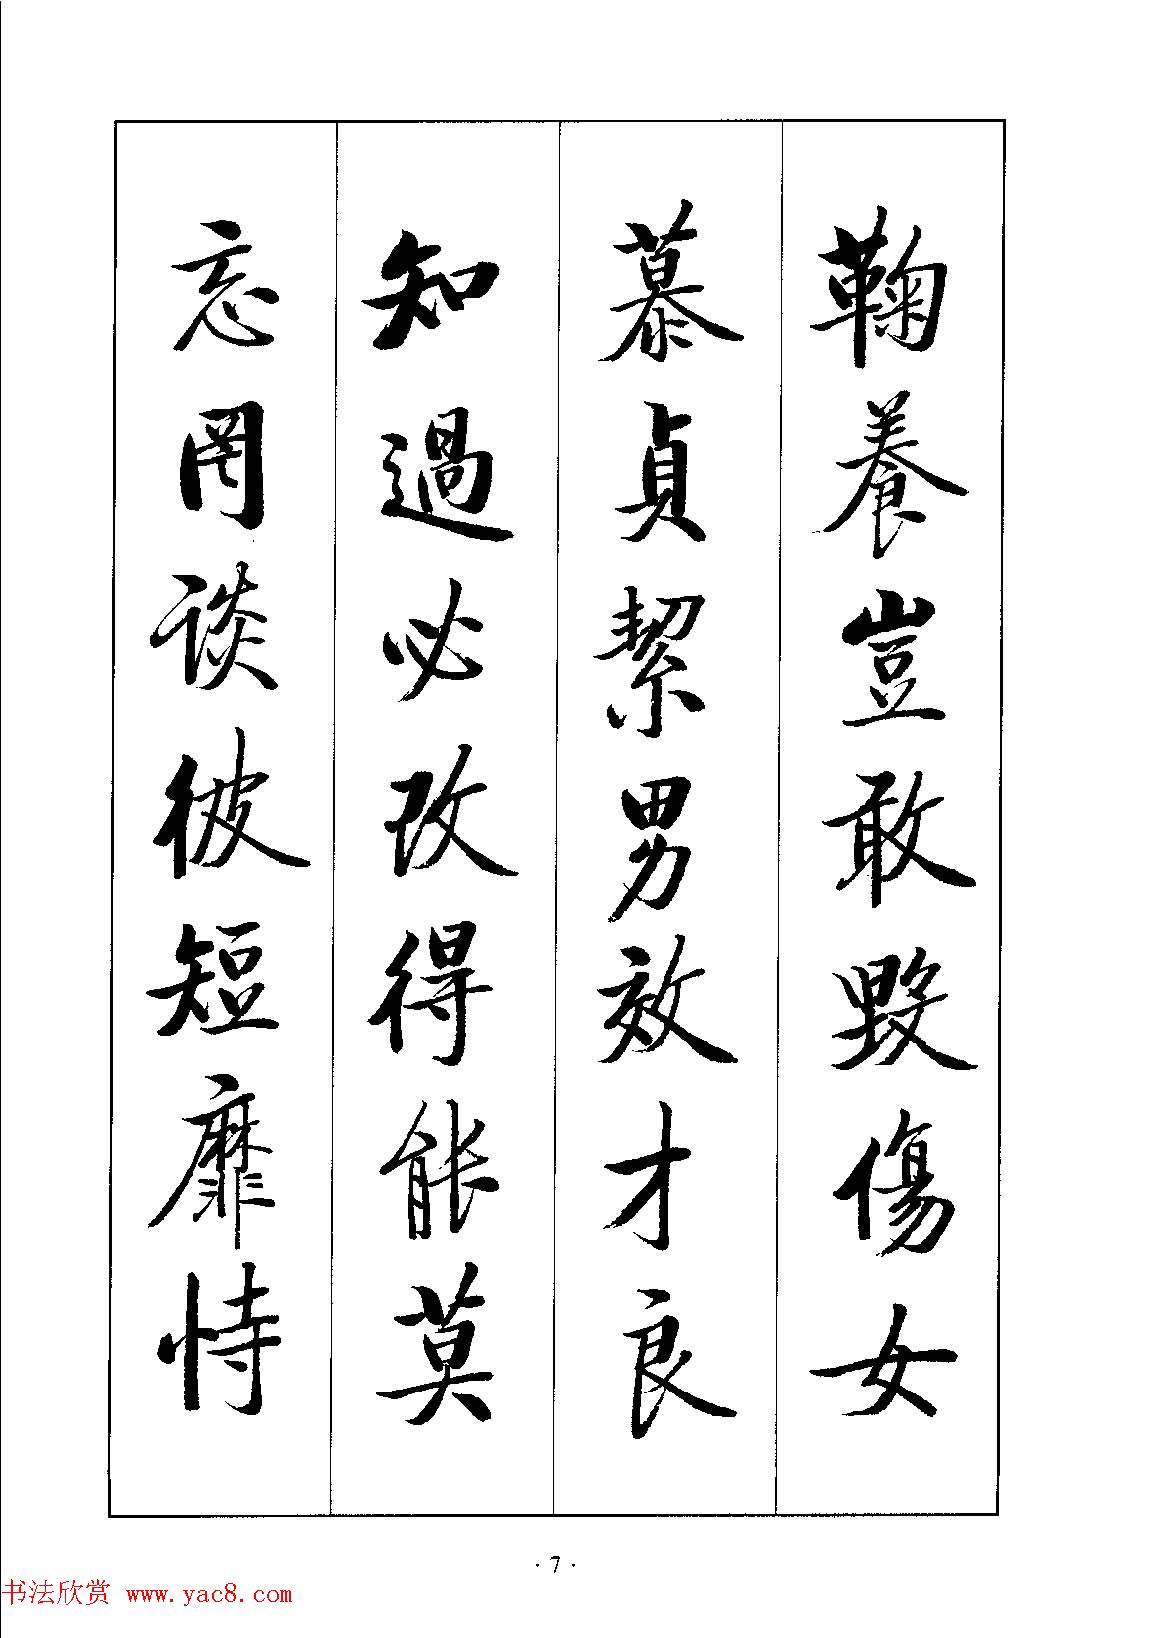 鞠養豈敢毀傷女
慕貞絜男效才良
知過必改得能莫
忘罔谈彼短靡恃
·7·
书法欣赏 www.yac8.com